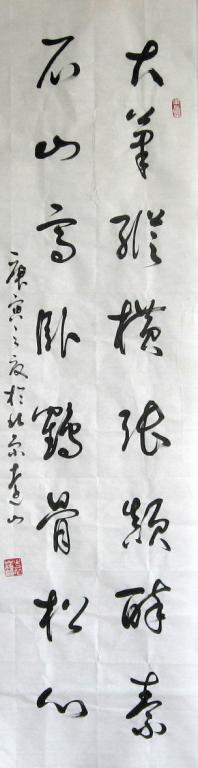 大筆縱横張顛醉素
石山高卧鶴骨松心
庚寅之夏於北京遠山